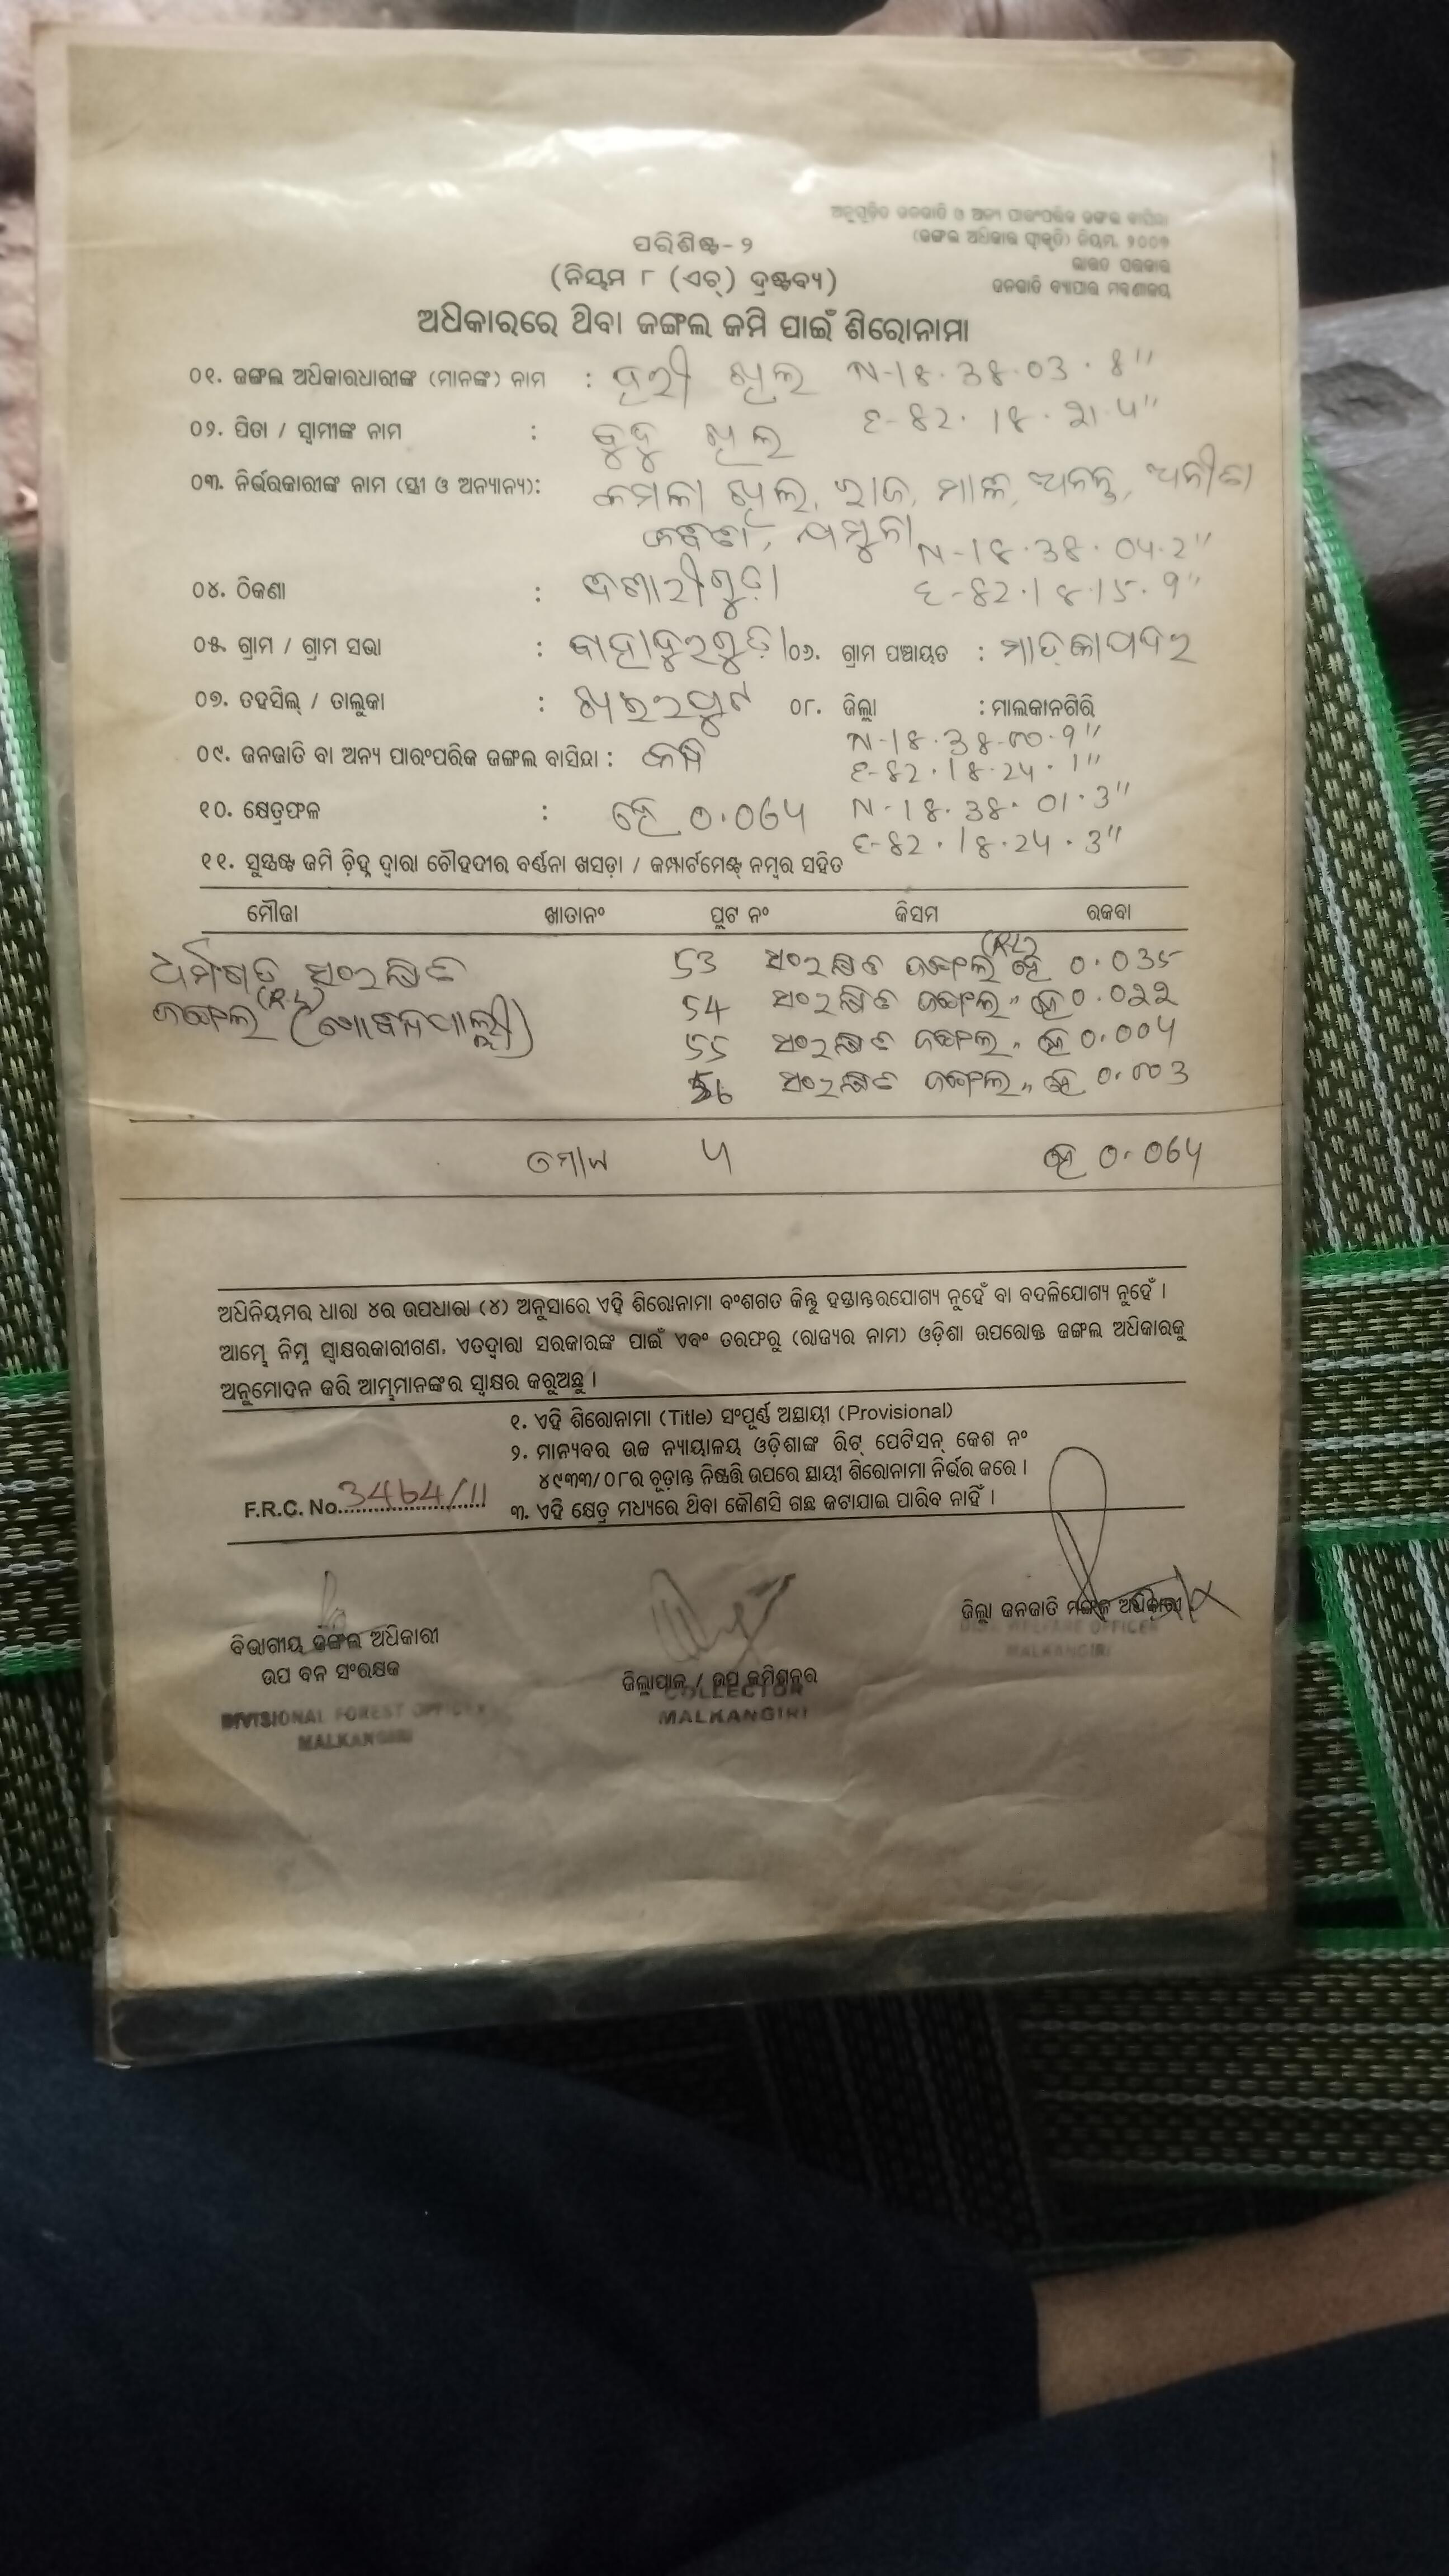 ଅନୁସୂଚିତ ଜନଜାତି ଓ ଅନ୍ୟ ପାରଂପରିକ ଜଙ୍ଗଲ ବାସିନ୍ଦା
(ଜଙ୍ଗଲ ଅଧିକାର ସ୍ୱୀକୃତି) ନିୟମ, ୨୦୦୭
ଭାରତ ସରକାର
ଜନଜାତି ବ୍ୟାପାର ମନ୍ତ୍ରଣାଳୟ
ପରିଶିଷ୍ଟ-୨
(ନିୟମ ୮ (ଏଚ୍) ଦ୍ରଷ୍ଟବ୍ୟ)
ଅଧିକାରରେ ଥିବା ଜଙ୍ଗଲ ଜମି ପାଇଁ ଶିରୋନାମା
୦୧. ଜଙ୍ଗଲ ଅଧିକାରଧାରୀଙ୍କ (ମାନଙ୍କ) ନାମ : N-18.38.03.8"
୦୨. ପିତା / ସ୍ୱାମୀଙ୍କ ନାମ : E-82.18.21.4"
୦୩. ନିର୍ଭରକାରୀଙ୍କ ନାମ (ସ୍ତ୍ରୀ ଓ ଅନ୍ୟାନ୍ୟ):
ଯମୁନା N-18.38.04.2"
୦୪. ଠିକଣା : E-82.18.15.9"
୦୫. ଗ୍ରାମ / ଗ୍ରାମ ସଭା : ବାହାଦୁରଗୁଡ଼ା ୦୬. ଗ୍ରାମ ପଞ୍ଚାୟତ :
୦୭. ତହସିଲ୍ / ତାଲୁକା : ଖଇରପୁଟ ୦୮. ଜିଲ୍ଲା : ମାଲକାନଗିରି
N-18.38.00.9"
୦୯. ଜନଜାତି ବା ଅନ୍ୟ ପାରଂପରିକ ଜଙ୍ଗଲ ବାସିନ୍ଦା : E-82.18.24.1"
୧୦. କ୍ଷେତ୍ରଫଳ : ହେ 0.064 N-18.38.01.3"
E-82.18.24.3"
୧୧. ସୁସ୍ପଷ୍ଟ ଜମି ଚିହ୍ନ ଦ୍ୱାରା ଚୌହଦୀର ବର୍ଣ୍ଣନା ଖସଡ଼ା / କମ୍ପାର୍ଟମେଣ୍ଟ୍ ନମ୍ବର ସହିତ
ମୌଜା ଖାତାନଂ ପ୍ଲଟ ନଂ କିସମ ରକବା
ସଂରକ୍ଷିତ 53 ସଂରକ୍ଷିତ ଜଙ୍ଗଲ ହେ 0.035
ଜଙ୍ଗଲ 54 ସଂରକ୍ଷିତ ଜଙ୍ଗଲ " ହେ 0.022
55 ସଂରକ୍ଷିତ ଜଙ୍ଗଲ " ହେ 0.004
56 ସଂରକ୍ଷିତ ଜଙ୍ଗଲ " ହେ 0.003
ମୋଟ 4 ହେ 0.064
ଅଧିନିୟମର ଧାରା ୪ର ଉପଧାରା (୪) ଅନୁସାରେ ଏହି ଶିରୋନାମା ବଂଶଗତ କିନ୍ତୁ ହସ୍ତାନ୍ତରଯୋଗ୍ୟ ନୁହେଁ ବା ବଦଳିଯୋଗ୍ୟ ନୁହେଁ ।
ଆମ୍ଭେ ନିମ୍ନ ସ୍ୱାକ୍ଷରକାରୀଗଣ, ଏତଦ୍ୱାରା ସରକାରଙ୍କ ପାଇଁ ଏବଂ ତରଫରୁ (ରାଜ୍ୟର ନାମ) ଓଡ଼ିଶା ଉପରୋକ୍ତ ଜଙ୍ଗଲ ଅଧିକାରକୁ
ଅନୁମୋଦନ କରି ଆମ୍ଭମାନଙ୍କର ସ୍ୱାକ୍ଷର କରୁଅଛୁ ।
୧. ଏହି ଶିରୋନାମା (Title) ସଂପୂର୍ଣ୍ଣ ଅସ୍ଥାୟୀ (Provisional)
୨. ମାନ୍ୟବର ଉଚ୍ଚ ନ୍ୟାୟାଳୟ ଓଡ଼ିଶାଙ୍କ ରିଟ୍ ପେଟିସନ୍ କେଶ ନଂ
୪୯୩୩/୦୮ର ଚୂଡ଼ାନ୍ତ ନିଷ୍ପତ୍ତି ଉପରେ ସ୍ଥାୟୀ ଶିରୋନାମା ନିର୍ଭର କରେ ।
F.R.C. No. 3464/11 ୩. ଏହି କ୍ଷେତ୍ର ମଧ୍ୟରେ ଥିବା କୌଣସି ଗଛ କଟାଯାଇ ପାରିବ ନାହିଁ ।
ବିଭାଗୀୟ ଜଙ୍ଗଲ ଅଧିକାରୀ
ଉପ ବନ ସଂରକ୍ଷକ
DIVISIONAL FOREST OFFICER
MALKANGIRI
ଜିଲ୍ଲାପାଳ / ଉପ କମିଶନର
COLLECTOR
MALKANGIRI
ଜିଲ୍ଲା ଜନଜାତି ମଙ୍ଗଳ ଅଧିକାରୀ
DIST. WELFARE OFFICER
MALKANGIRI